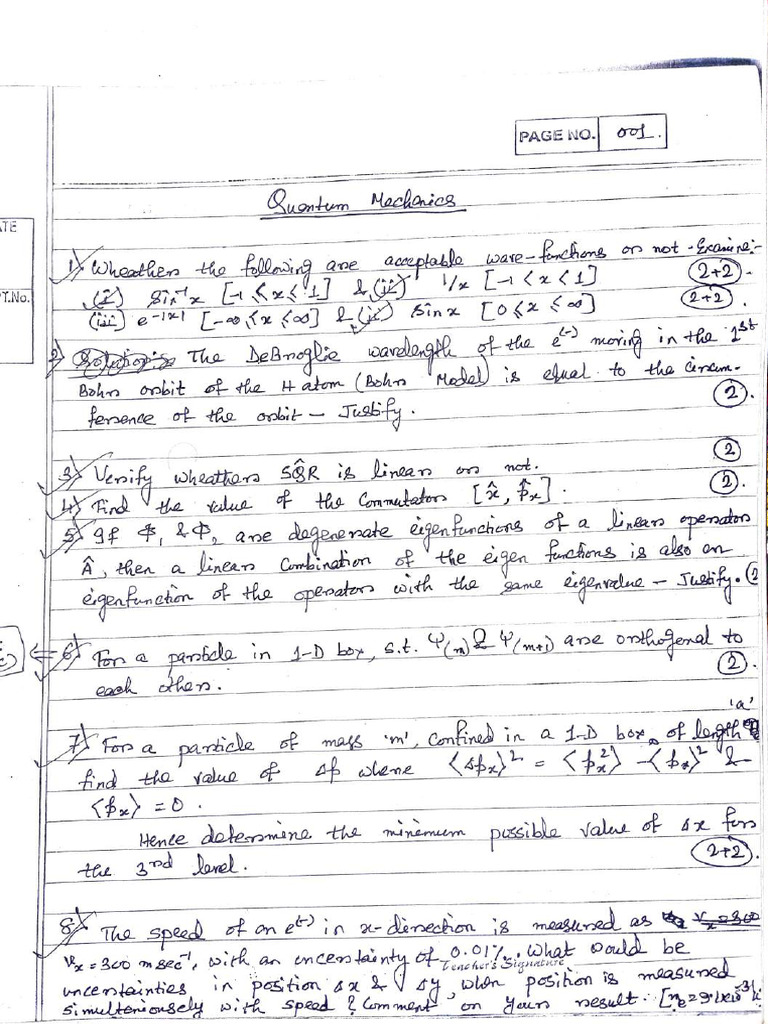 PAGE NO. 001.
Quantum Mechanics
ATE
PT.No.
1) Wheathers the following are acceptable wave-functions or not - Examine:-
(i) Sin⁻¹x [-1 ≤ x ≤ 1] & (ii) 1/x [-1 < x < 1] (2+2).
(iii) e^-|x| [-∞ ≤ x ≤ ∞] & (iv) Sin x [0 ≤ x ≤ ∞] (2+2).
2) The DeBroglie wavelength of the e(-) moving in the 1st
Bohr orbit of the H atom (Bohr Model) is equal to the circum-
ference of the orbit - Justify. (2).
3) Verify wheathers SQR is linear or not. (2)
4) Find the value of the Commutator [x̂, p̂x]. (2).
5) If Φ₁ & Φ₂ are degenerate eigenfunctions of a linear operator
Â, then a linear Combination of the eigen functions is also an
eigenfunction of the operator with the same eigenvalue - Justify. (2
6) For a particle in 1-D box, s.t. Ψ(m) & Ψ(m+1) are orthogonal to
each other. (2).
7) For a particle of mass 'm', confined in a 1-D box of length 'a'
find the value of Δp where ⟨Δpx⟩² = ⟨px²⟩ - ⟨px⟩² &
⟨px⟩ = 0.
Hence determine the minimum possible value of Δx for
the 3rd level. (2+2).
8) The speed of an e(-) in x-direction is measured as vx=300
vx = 300 m sec⁻¹, with an uncertainty of 0.01%. What would be
Teacher's Signature
uncertainties in position Δx & Δy, when position is measured
simulteniousely with speed & Comment on your result.